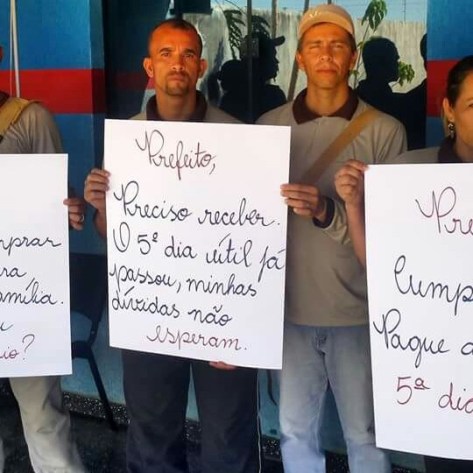 mprar
ra
amília.
u
io?
Prefeito,
Preciso receber.
O 5ª dia úitil já
passou, minhas
dúvidas não
esperam.
Pre
Cump
Paque a
5ª dia